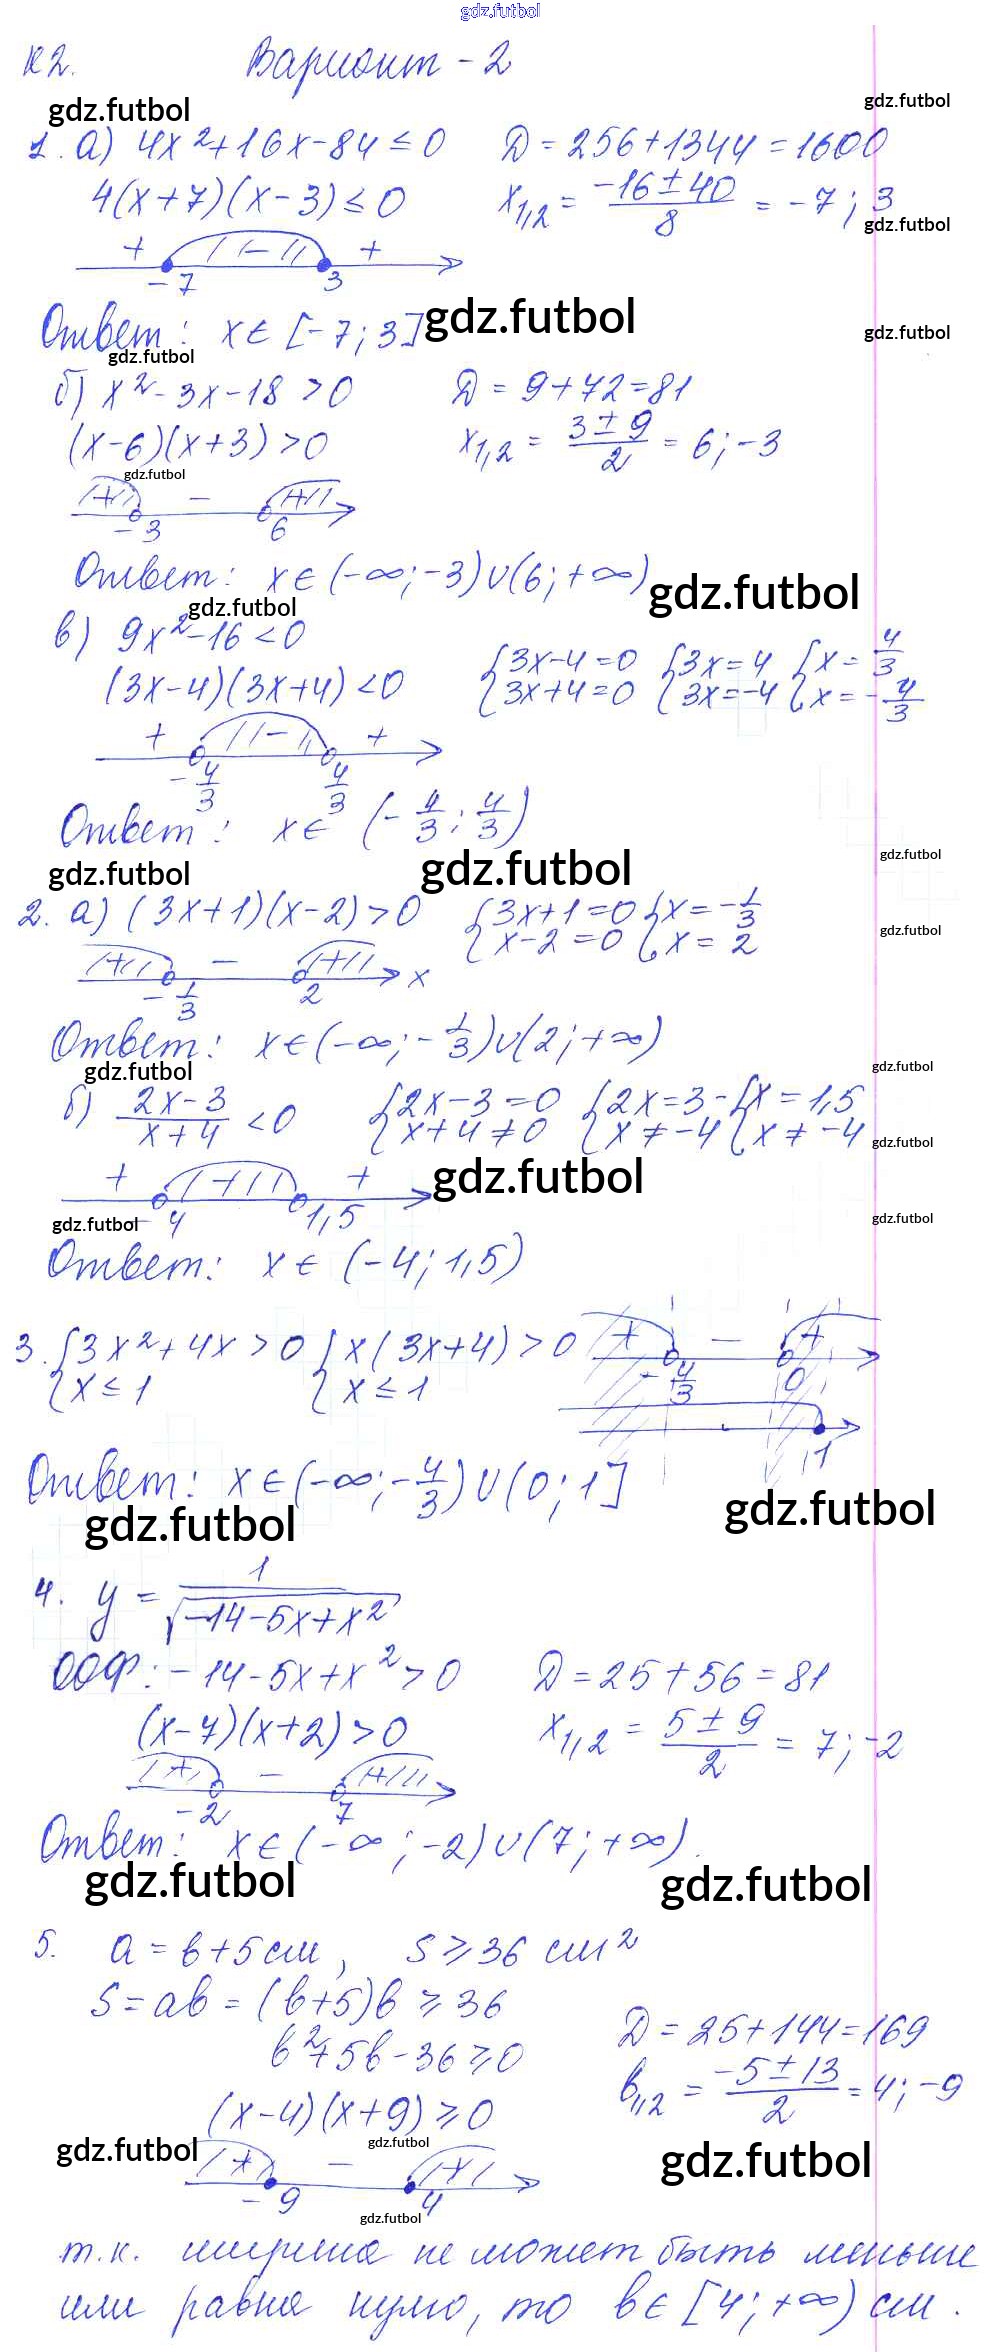 gdz.futbol
К2. Вариант - 2
gdz.futbol gdz.futbol
1. а) 4x² + 16x - 84 ≤ 0 D = 256 + 1344 = 1600
4(x + 7)(x - 3) ≤ 0 x₁,₂ = (-16 ± 40)/8 = -7; 3
gdz.futbol
+ - +
-7 3
Ответ: x ∈ [-7; 3] gdz.futbol gdz.futbol
gdz.futbol
б) x² - 3x - 18 > 0 D = 9 + 72 = 81
(x - 6)(x + 3) > 0 x₁,₂ = (3 ± 9)/2 = 6; -3
gdz.futbol
+ - +
-3 6
Ответ: x ∈ (-∞; -3) ∪ (6; +∞) gdz.futbol
gdz.futbol
в) 9x² - 16 < 0
(3x - 4)(3x + 4) < 0 {3x - 4 = 0 {3x = 4 {x = 4/3
{3x + 4 = 0 {3x = -4 {x = -4/3
+ - +
-4/3 4/3
Ответ: x ∈ (-4/3; 4/3)
gdz.futbol gdz.futbol gdz.futbol
2. а) (3x + 1)(x - 2) > 0 {3x + 1 = 0 {x = -1/3
{x - 2 = 0 {x = 2
gdz.futbol
+ - + x
-1/3 2
Ответ: x ∈ (-∞; -1/3) ∪ (2; +∞)
gdz.futbol gdz.futbol
б) (2x - 3)/(x + 4) < 0 {2x - 3 = 0 {2x = 3 - {x = 1,5
{x + 4 ≠ 0 {x ≠ -4 {x ≠ -4
gdz.futbol
+ + +
gdz.futbol
-4 1,5
gdz.futbol gdz.futbol
Ответ: x ∈ (-4; 1,5)
3. {3x² + 4x > 0 {x(3x + 4) > 0 + - +
{x ≤ 1 {x ≤ 1 -4/3 0
1
Ответ: x ∈ (-∞; -4/3) ∪ (0; 1]
gdz.futbol gdz.futbol
4. y = 1/√(-14 - 5x + x²)
ООФ: -14 - 5x + x² > 0 D = 25 + 56 = 81
(x - 7)(x + 2) > 0 x₁,₂ = (5 ± 9)/2 = 7; -2
+ - +
-2 7
Ответ: x ∈ (-∞; -2) ∪ (7; +∞).
gdz.futbol gdz.futbol
5. a = b + 5 см, S ≥ 36 см²
S = ab = (b + 5)b ≥ 36
b² + 5b - 36 ≥ 0 D = 25 + 144 = 169
(x - 4)(x + 9) ≥ 0 b₁,₂ = (-5 ± 13)/2 = 4; -9
gdz.futbol gdz.futbol gdz.futbol
+ - +
-9 4
gdz.futbol
т.к. ширина не может быть меньше
или равна нулю, то b ∈ [4; +∞) см.